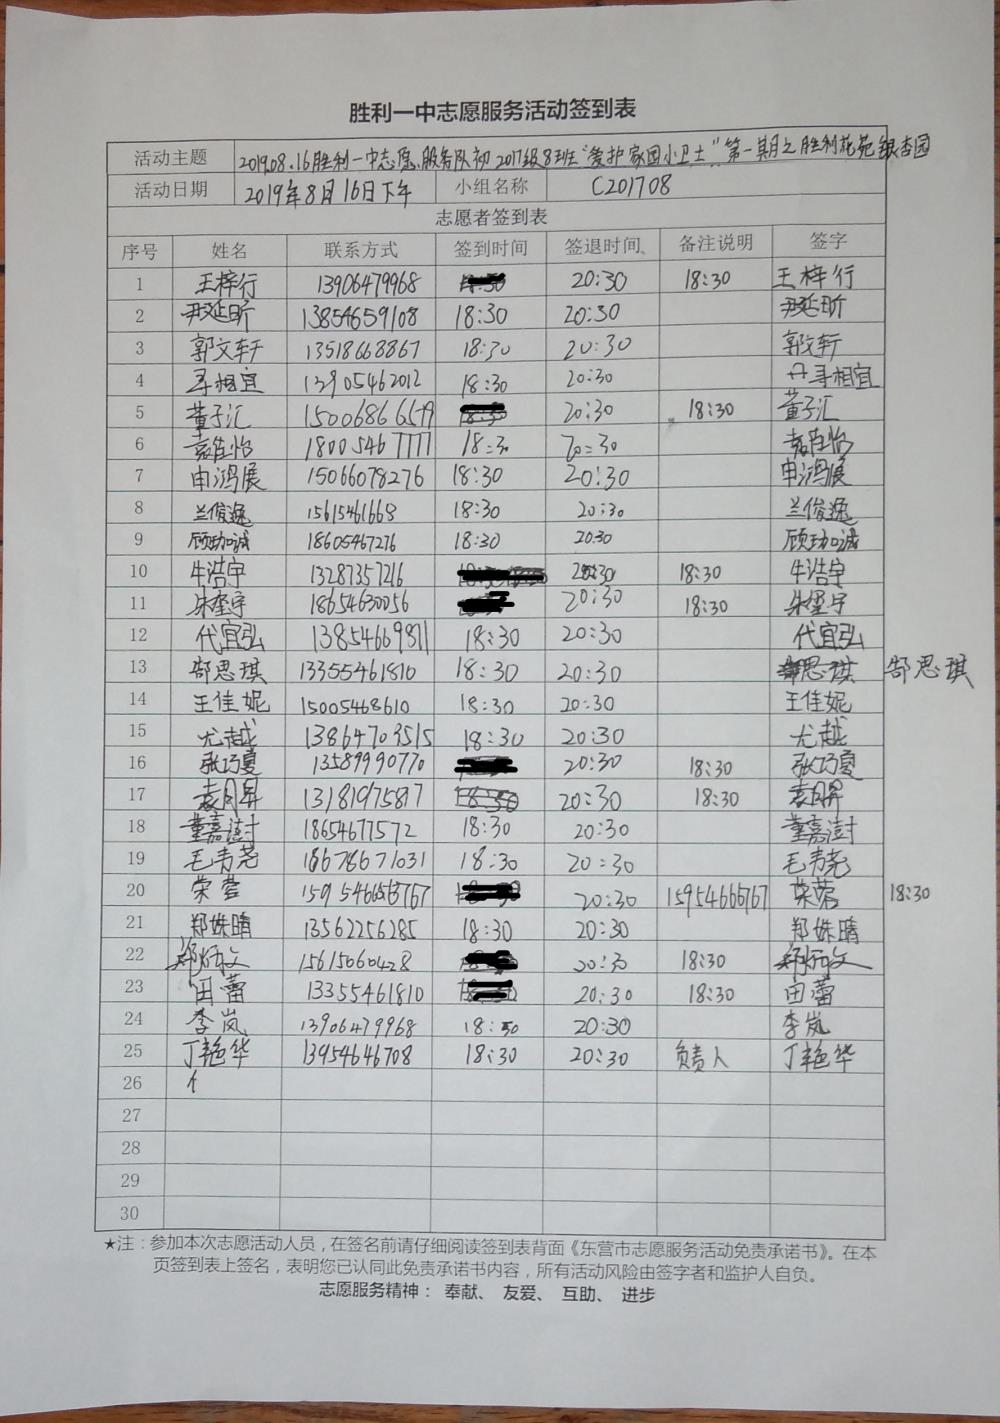 胜利一中志愿服务活动签到表
活动主题 2019.08.16胜利一中志愿服务队初2017级8班"爱护家园小卫士"第一期之胜利花苑银杏园
活动日期 2019年8月16日下午 小组名称 C201708
志愿者签到表
序号 姓名 联系方式 签到时间 签退时间、 备注说明 签字
1 王梓行 13906479968 20:30 18:30 王梓行
2 尹延昕 13854659108 18:30 20:30 尹延昕
3 郭文轩 13518668867 18:30 20:30 郭文轩
4 寻相宜 13905462012 18:30 20:30 寻相宜
5 董子汇 15006866579 20:30 18:30 董子汇
6 袁佳怡 18005467777 18:30 20:30 袁佳怡
7 申鸿展 15066078276 18:30 20:30 申鸿展
8 兰俊逸 15615461668 18:30 20:30 兰俊逸
9 顾珈诚 18605467276 18:30 20:30 顾珈诚
10 牛浩宇 13287357216 20:30 18:30 牛浩宇
11 朱玺宇 18654630056 20:30 18:30 朱玺宇
12 代宜弘 13854669811 18:30 20:30 代宜弘
13 郜思琪 13355461810 18:30 20:30 思琪 郜思琪
14 王佳妮 15005468610 18:30 20:30 王佳妮
15 尤越 13864703515 18:30 20:30 尤越
16 张巧夏 13589990770 20:30 18:30 张巧夏
17 袁月昇 13181975817 18:30 20:30 18:30 袁月昇
18 董嘉澍 18654677572 18:30 20:30 董嘉澍
19 毛韦尧 18678671031 18:30 20:30 毛韦尧
20 荣蓉 20:30 15954666767 荣蓉 18:30
21 郑姝晴 13562256285 18:30 20:30 郑姝晴
22 郑炳文 15615060428 20:30 18:30 郑炳文
23 田蕾 13355461810 20:30 18:30 田蕾
24 李岚 13906479968 18:30 20:30 李岚
25 丁艳华 13954646708 18:30 20:30 负责人 丁艳华
26
27
28
29
30
★注：参加本次志愿活动人员，在签名前请仔细阅读签到表背面《东营市志愿服务活动免责承诺书》。在本
页签到表上签名，表明您已认同此免责承诺书内容，所有活动风险由签字者和监护人自负。
志愿服务精神： 奉献、 友爱、 互助、 进步